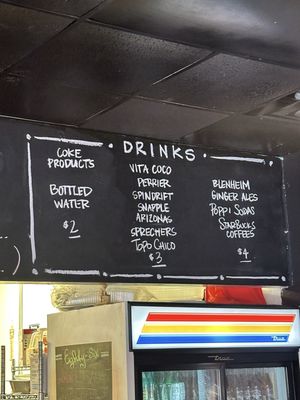 DRINKS
COKE
PRODUCTS
BOTTLED
WATER
$2
VITA COCO
PERRIER
SPINDRIFT
SNAPPLE
ARIZONAS
SPRECHERS
TOPO CHICO
$3
BLENHEIM
GINGER ALES
POPPI SODAS
STARBUCKS
COFFEES
$4
True
True